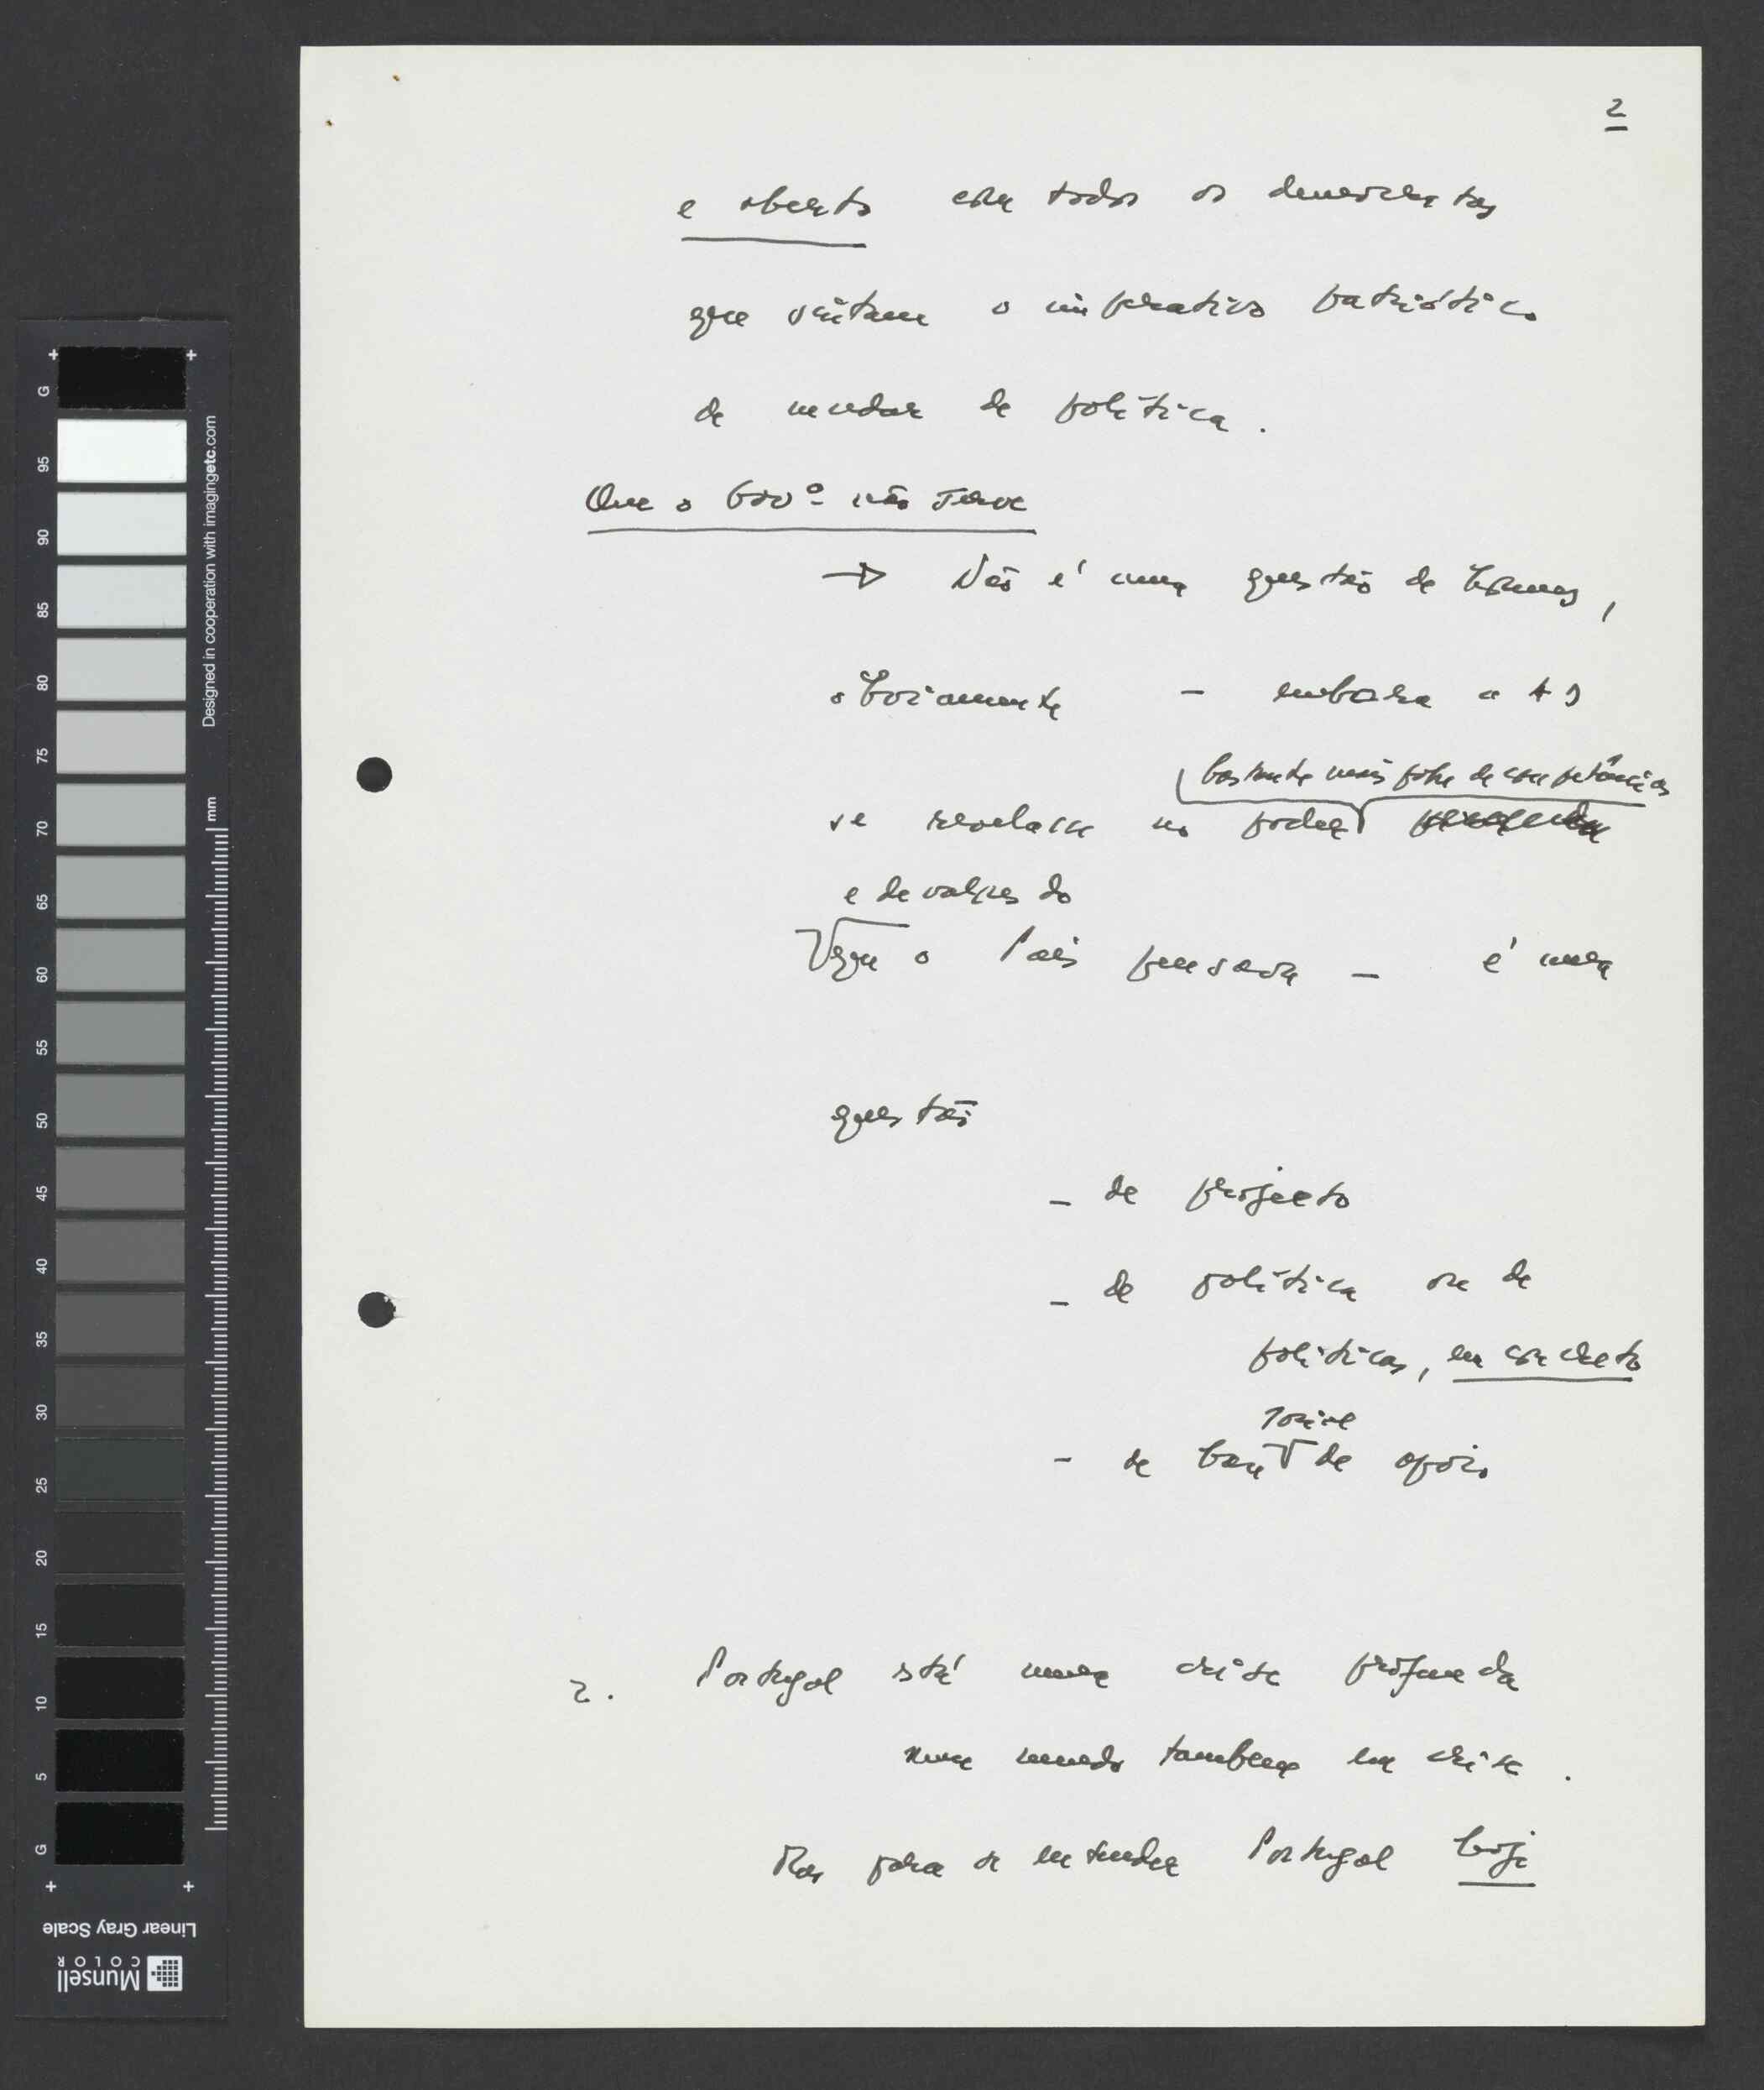 2
e aberto com todos os democratas
que sintam o imperativo patriótico
de mudar de política.
Que o Govº não serve
→ Não é uma questão de homens,
obviamente – embora a AD
bastante mais pobre de competências
se revelasse no poder
e de valores do
que o País pensava – é uma
questão
– de projecto
– de política ou de
políticas, em concreto
social
– de base de apoio
2. Portugal está numa crise profunda
num mundo também em crise.
Mas para se entender Portugal hoje
G
95
90
85
80
75
70
65
60
55
50
45
40
35
30
25
20
15
10
5
G
mm
Designed in cooperation with imagingetc.com
Linear Gray Scale
Munsell
COLOR